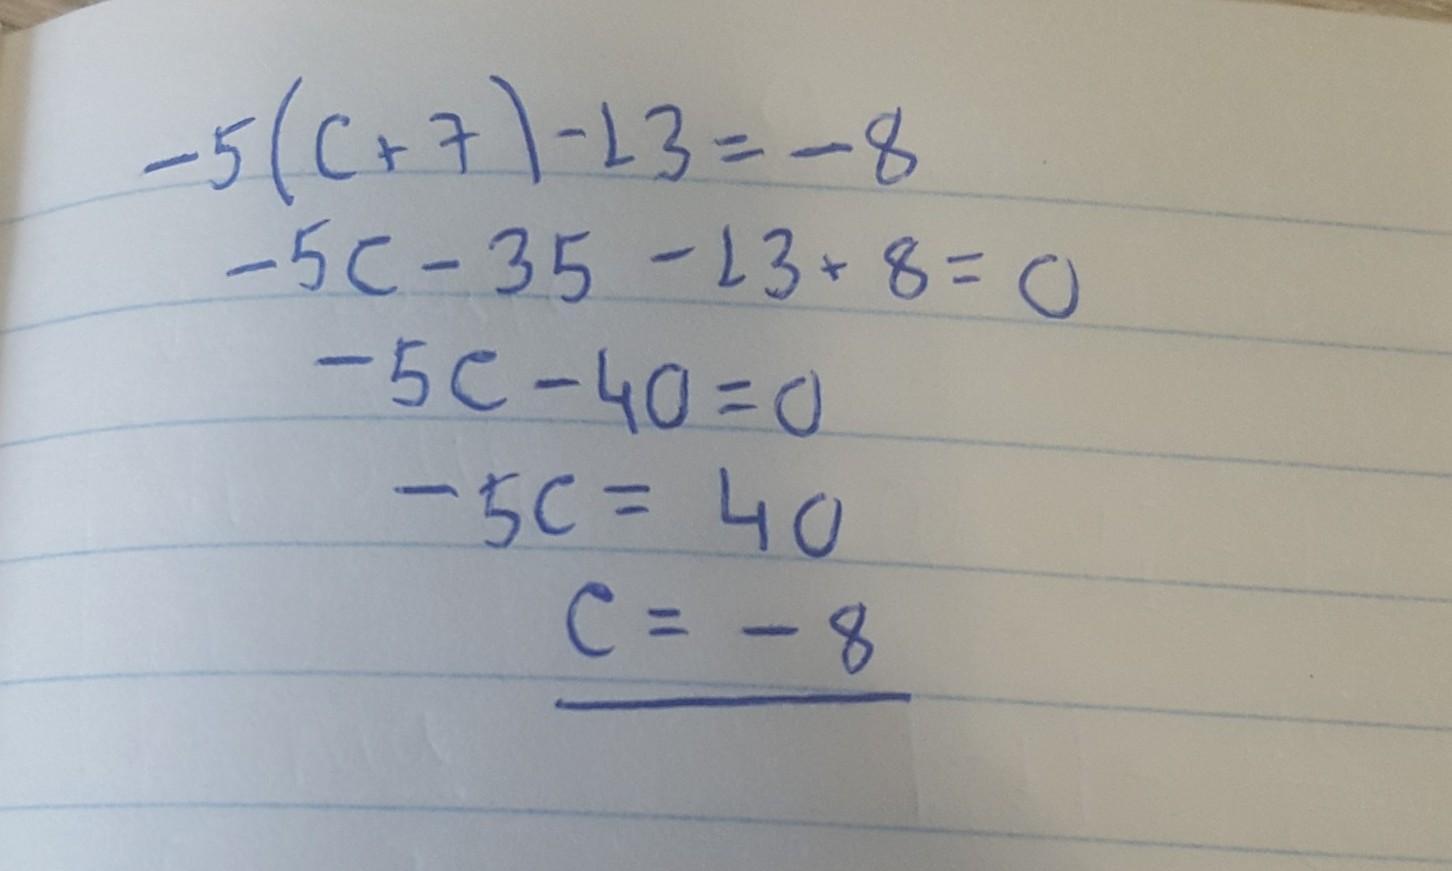 -5(C+7)-13=-8
-5C-35-13+8=0
-5C-40=0
-5C=40
C=-8